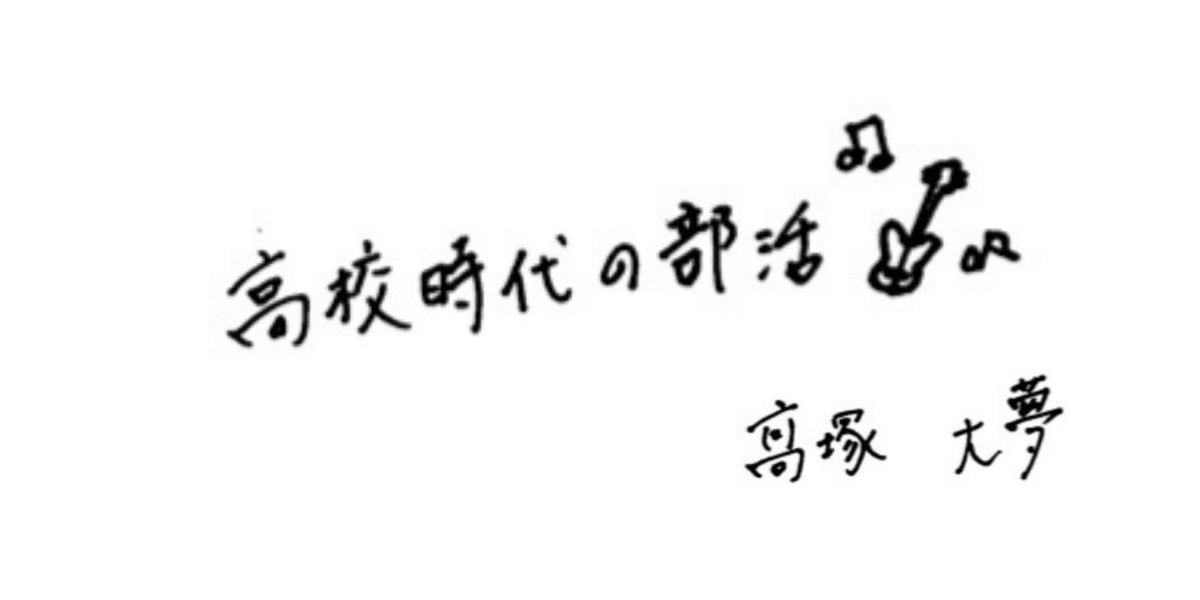 高校時代の部活
髙塚 大夢